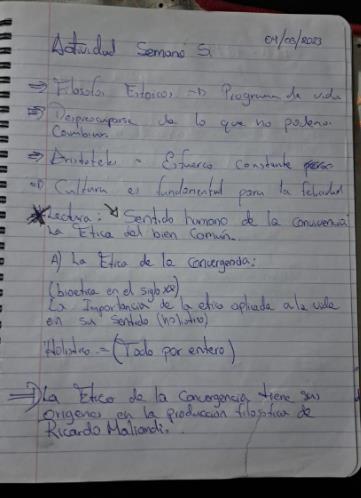 Actividad Semana 5.
04/03/2023
⇒ Filosofos Estoicos → Programa de vida
⇒ Despreocuparse de lo que no podemos
Cambiar.
⇒ Aristoteles = Esfuerzo constante
⇒ Cultura es fundamental para la felicidad
Lectura: Sentido humano de la convivencia
La Etica del bien Común.
A) La Etica de la Convergencia:
(bioetica en el siglo XX)
La Importancia de la etica aplicada a la vida
en su sentido (holistico)
Holistico = (Todo por entero)
⇒ La Etica de la Convergencia tiene sus
origenes en la producción filosofica de
Ricardo Maliandi.